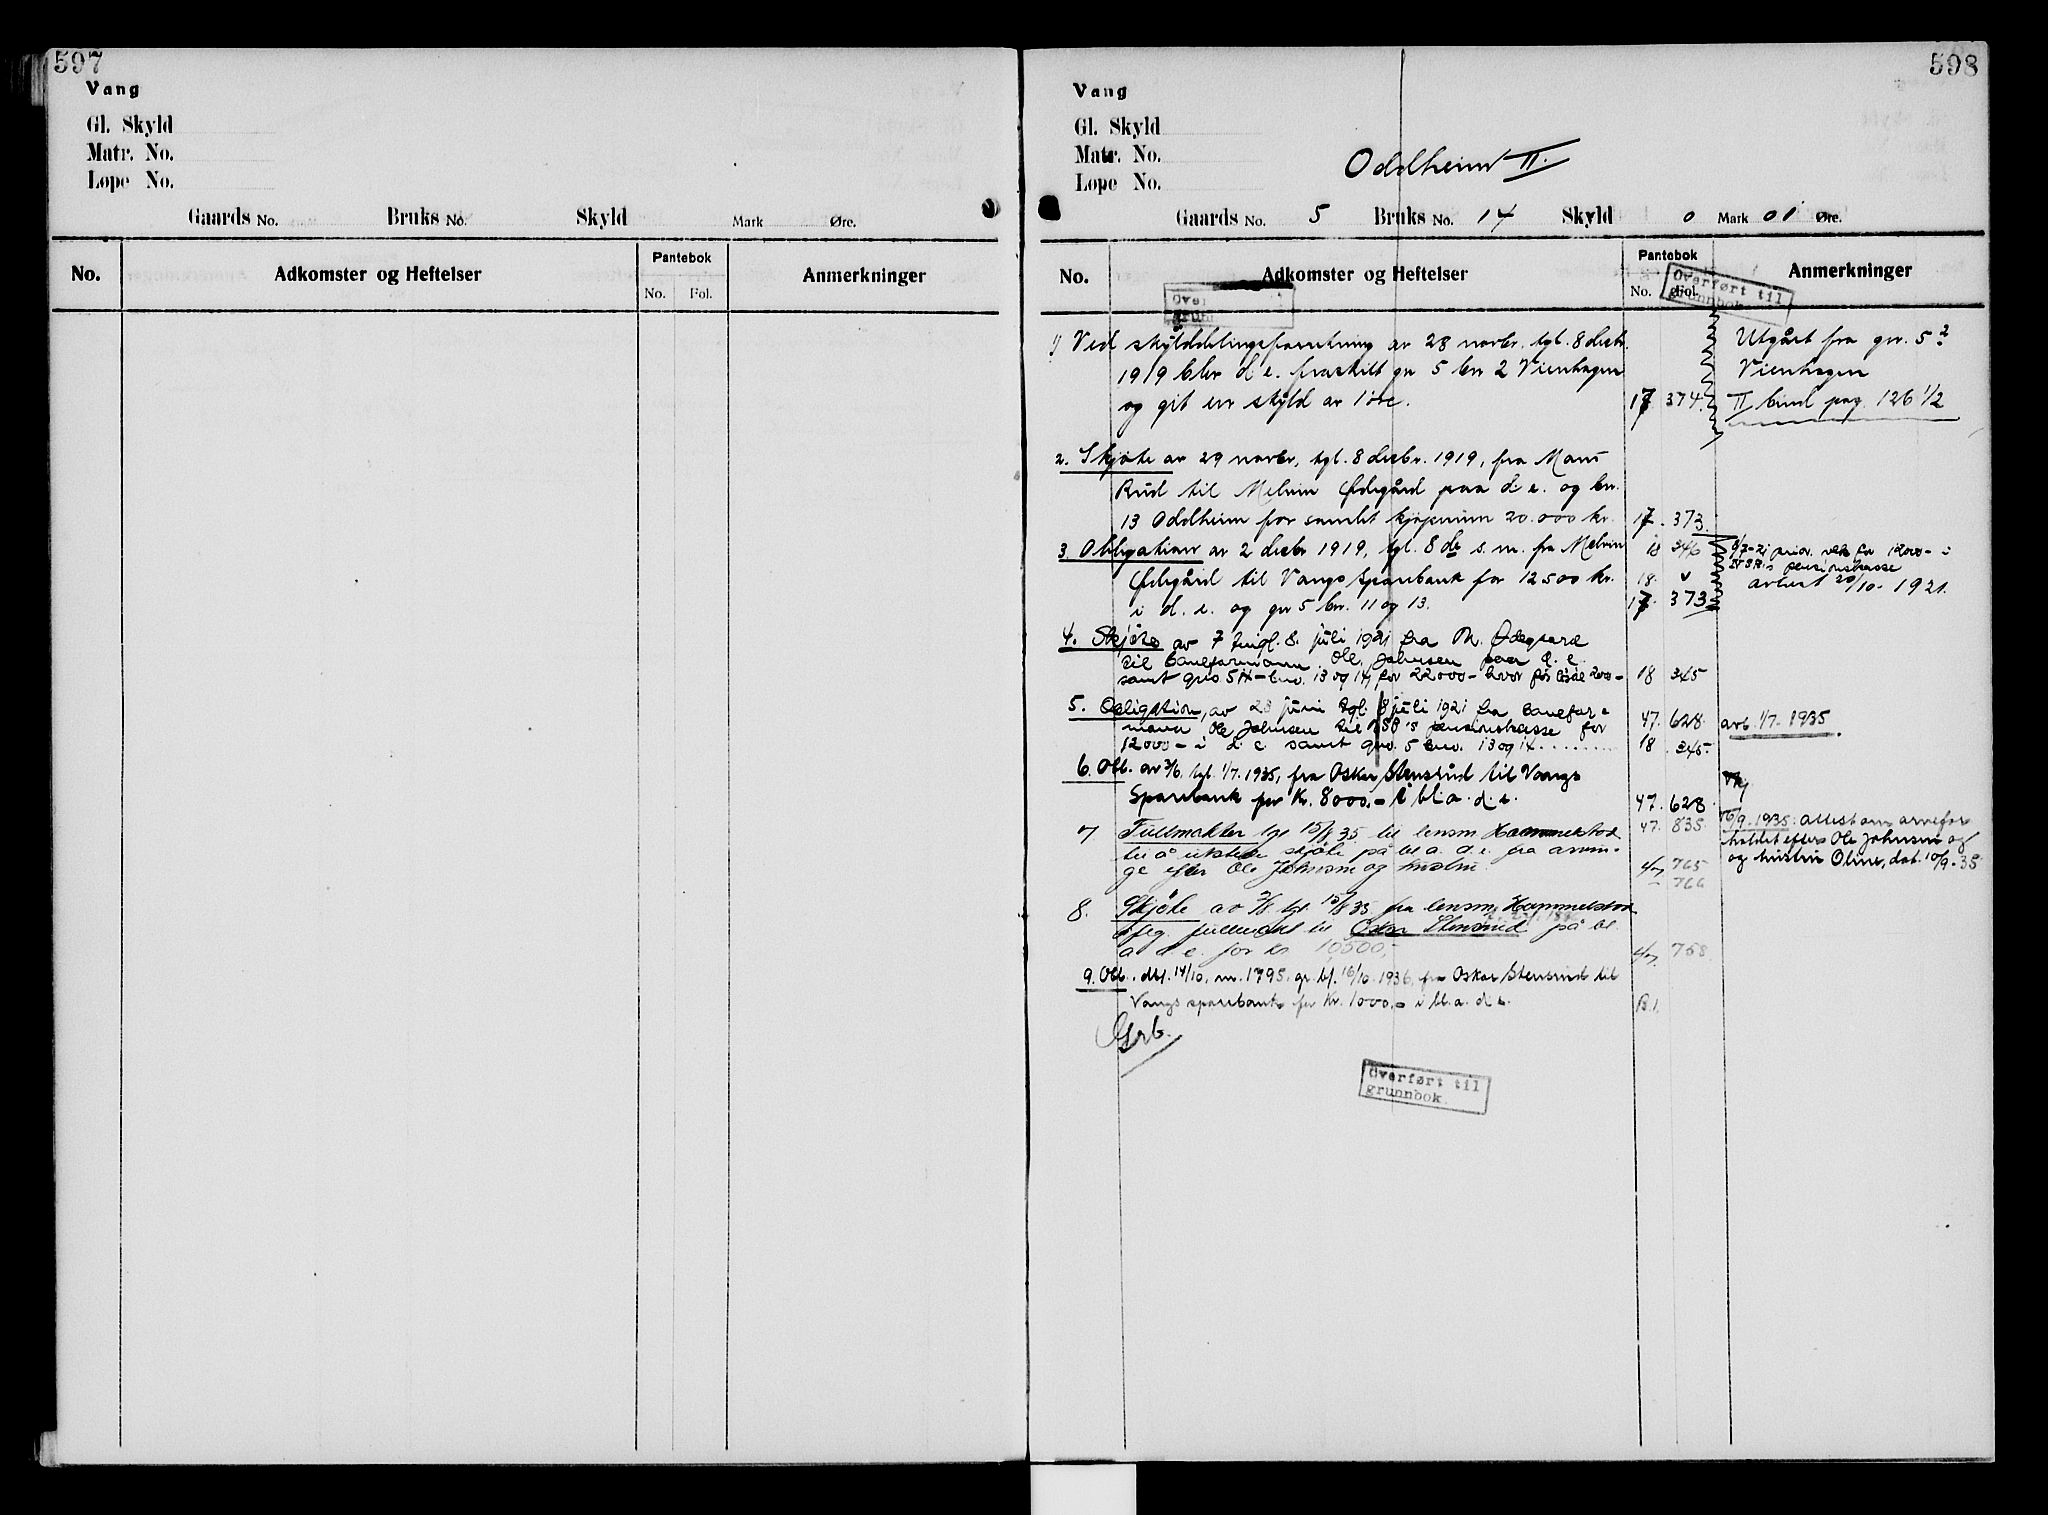 597
Vang
Gl. Skyld
Matr. No.
Lope No.
Gaards No. Bruks No. Skyld Mark Øre.
No. Adkomster og Heftelser Pantebok No. Fol. Anmerkninger
598
Vang
Gl. Skyld
Matr. No.
Lope No.
Oddheim II.
Gaards No. 5 Bruks No. 14 Skyld 0 Mark 01 Øre.
No. Adkomster og Heftelser Pantebok No. Fol. Anmerkninger
Overført til
grunnbok
1) Ved skylddelingsforretning av 28 novbr. tgl. 8 desbr. Utgått fra gnr. 5 2
1919 blev d. e. fraskilt gnr 5 bnr 2 Vienhagen Vienhagen
og git en skyld av 1 øre. 17 374. II bind pag. 126 1/2
2. Skjøte av 29 novbr. tgl. 8 desbr. 1919, fra
Rud til Melvin Ødegård paa d. e. og bnr.
13 Oddheim for samlet kjøpesum 20.000 kr. 17. 373.
3. Obligation av 2 desbr 1919, tgl. 8 de s. m. fra Melvin 18 346 8/7-21 prior. vek for 12000-
Ødegård til Vangs Sparebank for 12500 kr. 18. pensionskasse
i d. e. og gnr 5 bnr. 11 og 13. 17. 373 avlyst 20/10 - 1921.
4. Skjøte av 7 tingl. 8. juli 1921 fra M. Ødegaard
til baneformann Ole Johnsen paa d. e.
samt gno 5 bno. 13 og 14 for 22000- hvor for løsøre 2000- 18 345
5. Obligation, av 28 juni tgl. 8 juli 1921 fra banefor-
mann Ole Johnsen til pensionskasse for 47. 628. avl. 1/7. 1935.
12000- i d. e. samt gno. 5 bno. 13 og 14 18 345.
6. Obl. av 3/6. tgl. 1/7. 1935, fra Oskar Stensrud til Vangs
Sparebank for Kr. 8000.- i bl. a. d. e. 47. 628
7 Fullmakter tgl 15/8 35 til lensm Hammelstad 47. 835. 16/9. 1935: attest om arvefor
til å utstede skjøte på bl a. d. e. fra arvin- holdet efter Ole Johnsen og
ge efter Ole Johnsen og hustru. 47 765 og hustru Oline, dat. 10/9-35
766
8. Skjøte av 7/8 tgl. 15/8 35 fra lensm. Hammelstad
ifølg. fullmakt til Oskar Stensrud på bl.
a d. e. for kr 10500,- 47. 768.
9. Obl. dat. 14/10, nr. 1795. gr. bf. 16/10. 1936, fra Oskar Stensrud til
Vangs sparebank for Kr. 1000.- i bl. a. d. e. B. 1.
Overført til
grunnbok